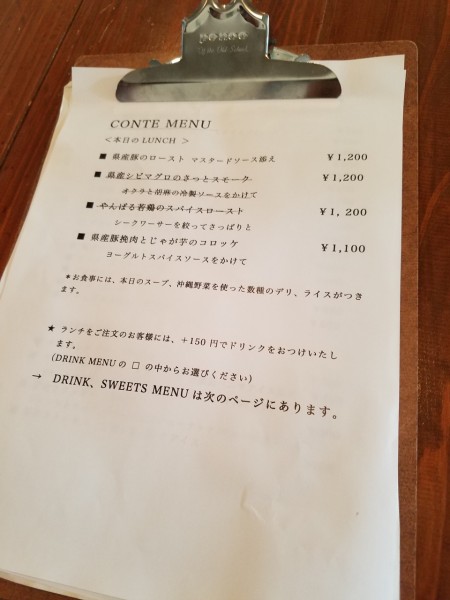 PENCO
CONTE MENU
＜本日のLUNCH ＞
■ 県産豚のロースト マスタードソース添え ￥1,200
■ 県産シビマグロのさっとスモーク ￥1,200
オクラと胡麻の冷製ソースをかけて
■ やんばる若鶏のスパイスロースト ￥1, 200
シークワーサーを絞ってさっぱりと
■ 県産豚挽肉とじゃが芋のコロッケ ￥1,100
ヨーグルトスパイスソースをかけて
＊お食事には、本日のスープ、沖縄野菜を使った数種のデリ、ライスがつき
ます。
★ ランチをご注文のお客様には、+150 円でドリンクをおつけいたし
ます。
（DRINK MENU の □ の中からお選びください）
→ DRINK、SWEETS MENU は次のページにあります。